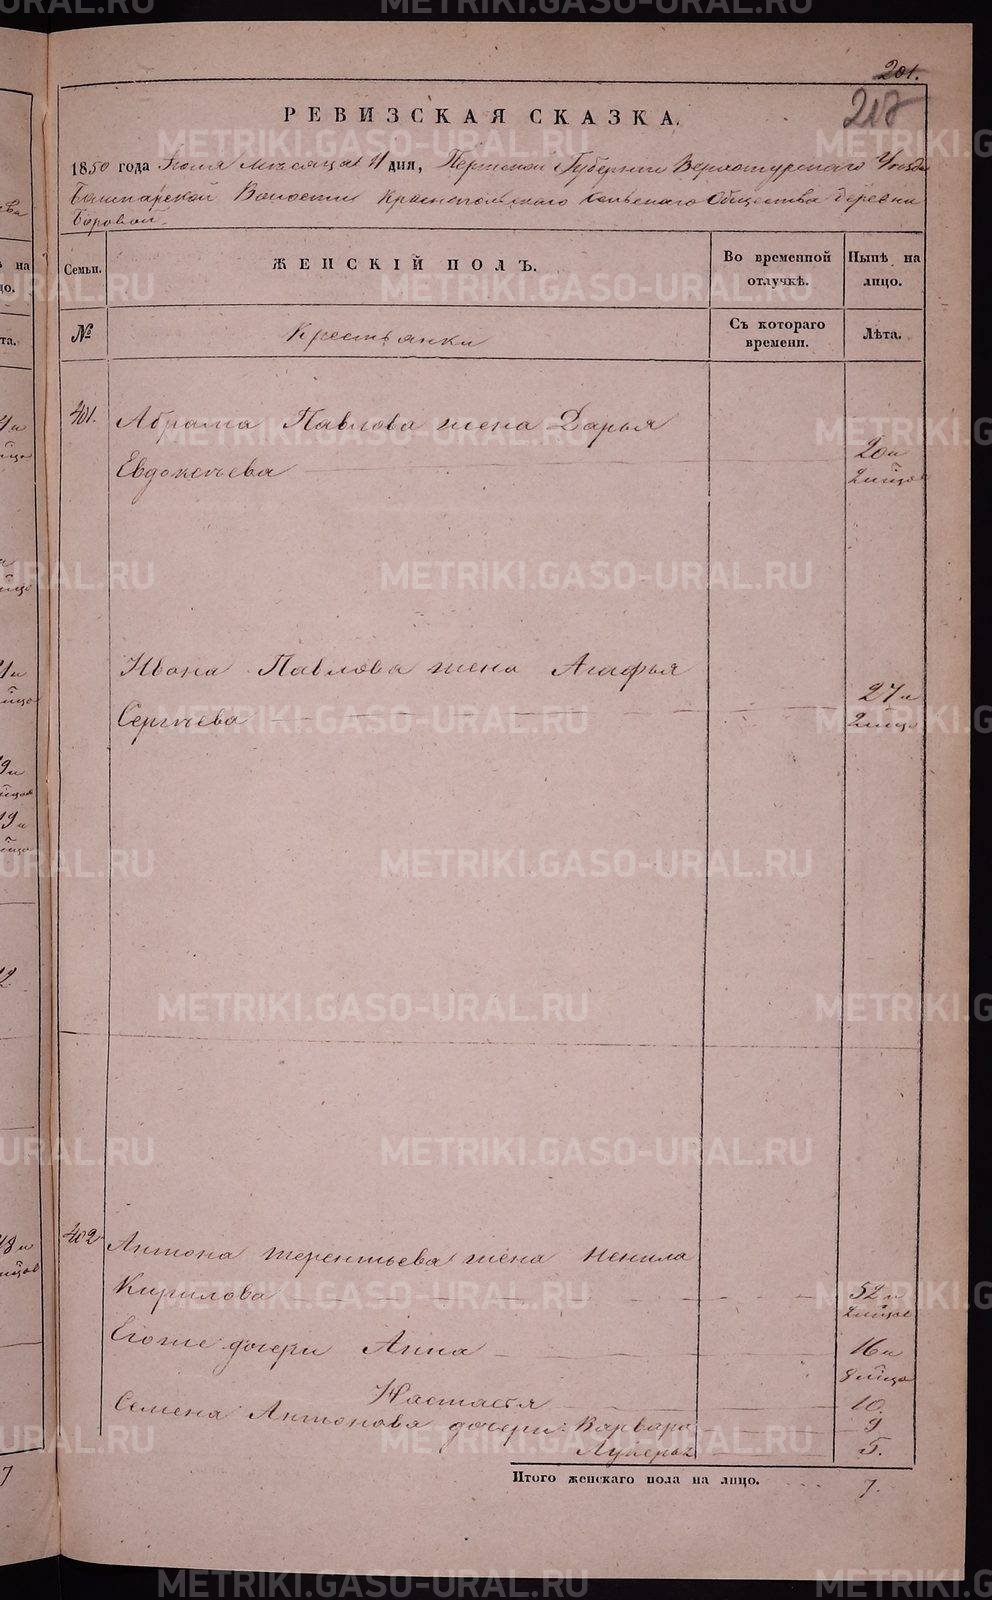 201.
217
РЕВИЗСКАЯ СКАЗКА.
1850 года Іюля месяца 11 дня, Пермской Губерніи Верхотурскаго Уезда
Башкарской Волости Краснопольскаго сельскаго Общества Деревни
Боровой.
Семьи. ЖЕНСКІЙ ПОЛЪ. Во временной отлучкѣ. Нынѣ на лицо.
№ Крестьянки Съ котораго времени. Лѣта.
401. Абрама Павлова жена Дарья
Евдокеева 20 и 2 мѣсяц
Ивана Павлова жена Агафья
Сергѣева 27 и
402 Антона Терентьева жена Ненила
Кирилова 52 и
Его же дочери Анна 16 и
Настасья 10.
Семена Антонова дочери: Варвара 9
Лукерья 5.
Итого женскаго пола на лицо. 7.
METRIKI.GASO-URAL.RU